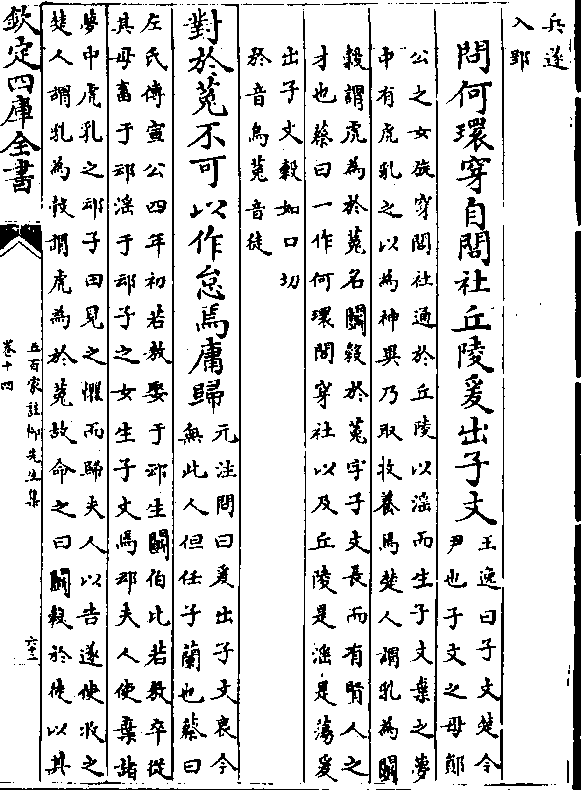 兵遂
入郢
問何環穿自閭社丘陵爰出子文
王逸曰子文楚令
尹也子文之母鄖
公之女旋穿閭社通於丘陵以淫而生子文棄之夢
中有虎乳之以為神異乃取收養焉楚人謂乳為鬭
穀謂虎為於菟名鬭穀於菟字子文長而有賢人之
才也蔡曰一作何環閭穿社以及丘陵是淫是蕩爰
出子文穀如口切
於音烏菟音徒
對於菟不可以作怠焉庸歸
元注問曰爰出子文哀今
無此人但任子蘭也蔡曰
左氏傳宣公四年初若敖娶于䢵生鬭伯比若敖卒從
其母畜于䢵淫于䢵子之女生子文焉䢵夫人使棄諸
夢中虎乳之䢵子田見之懼而歸夫人以告遂使收之
楚人謂乳為穀謂虎為於菟故命之曰鬭穀於徒以其
欽定四庫全書
五百家註柳先生集
卷十四